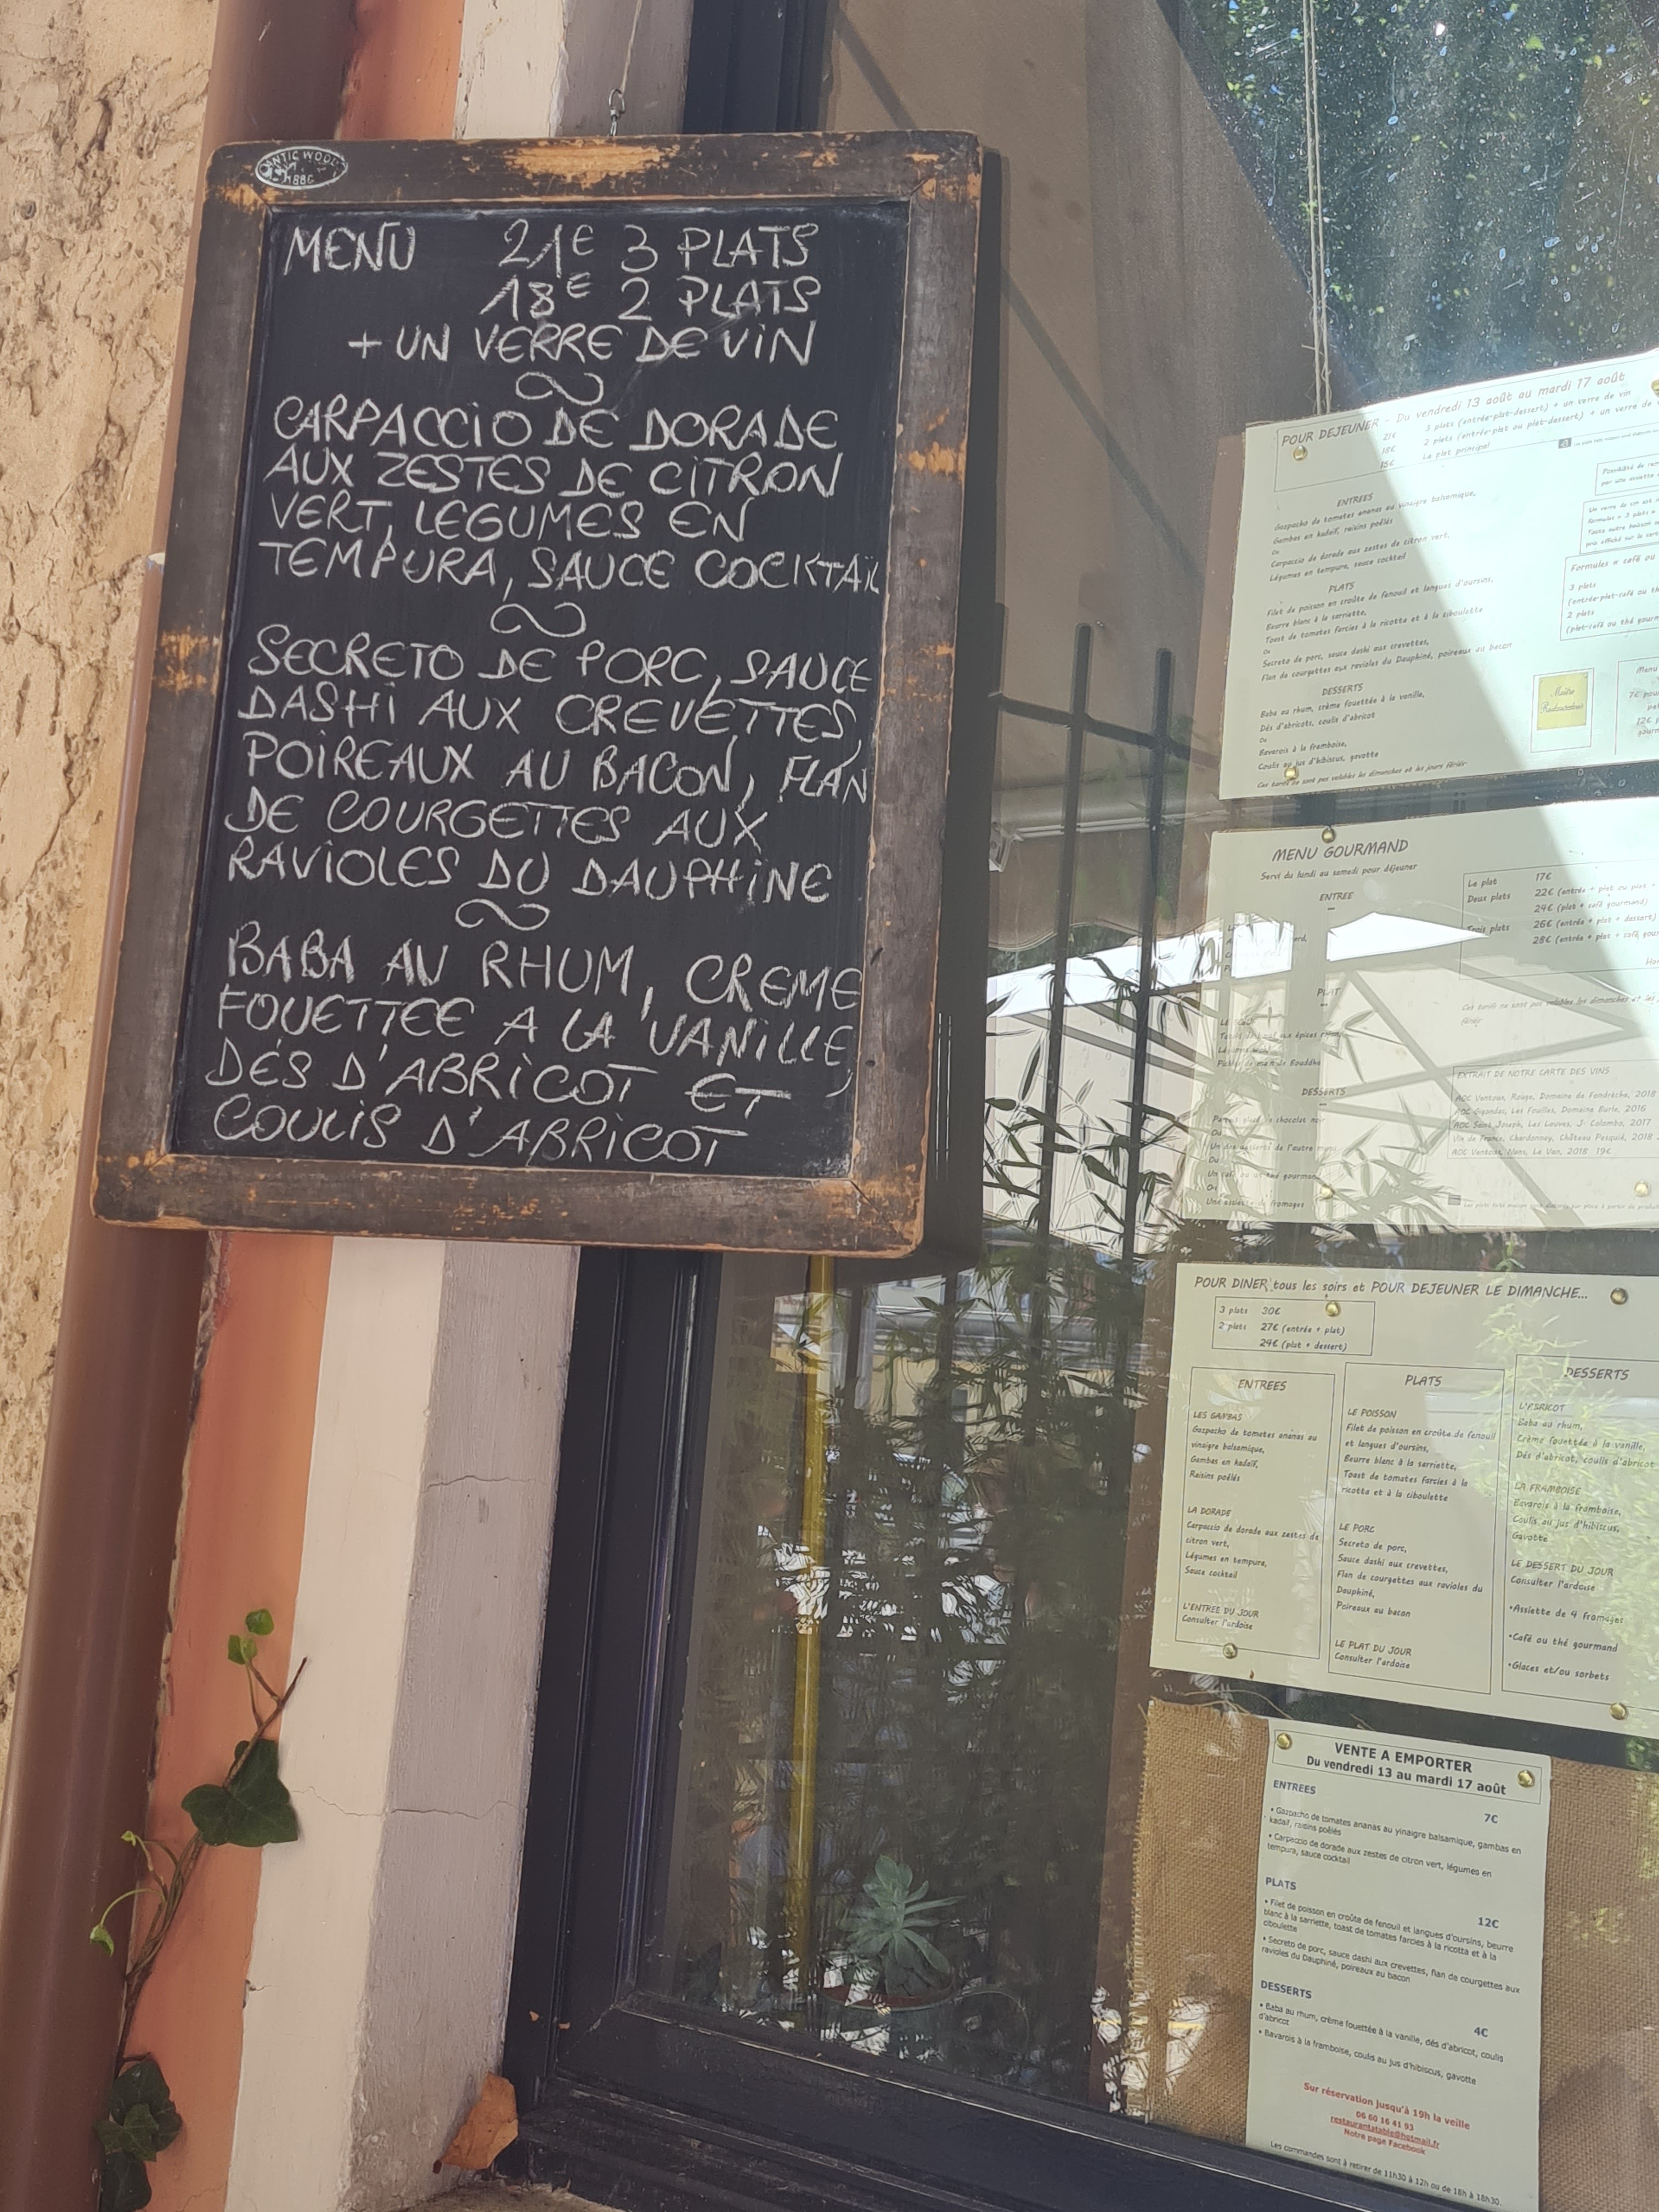 ANTIC WOOD
1886
MENU 21€ 3 PLATS
18€ 2 PLATS
+ UN VERRE DE VIN
CARPACCIO DE DORADE
AUX ZESTES DE CITRON
VERT, LEGUMES EN
TEMPURA, SAUCE COCKTAIL
SECRETO DE PORC, SAUCE
DASHI AUX CREVETTES,
POIREAUX AU BACON, FLAN
DE COURGETTES AUX
RAVIOLES DU DAUPHINE
BABA AU RHUM, CREME
FOUETTEE A LA VANILLE,
DÉS D'ABRICOT ET
COULIS D'ABRICOT
POUR DEJEUNER - Du vendredi 13 août au mardi 17 août
21€ 3 plats (entrée-plat-dessert) + un verre de vin
18€ 2 plats (entrée-plat ou plat-dessert) + un verre de
15€ Le plat principal
ENTREES
Gazpacho de tomates ananas au vinaigre balsamique,
Gambas en kadaïf, raisins poêlés
Ou
Carpaccio de dorade aux zestes de citron vert,
Légumes en tempura, sauce cocktail
PLATS
Filet de poisson en croûte de fenouil et langues d'oursins,
Beurre blanc à la sarriette,
Toast de tomates farcies à la ricotta et à la ciboulette
Ou
Secreto de porc, sauce dashi aux crevettes,
Flan de courgettes aux ravioles du Dauphiné, poireaux au bacon
DESSERTS
Baba au rhum, crème fouettée à la vanille,
Dés d'abricots, coulis d'abricot
Ou
Bavarois à la framboise,
Coulis au jus d'hibiscus, gavotte
Ces tarifs ne sont pas valables les dimanches et les jours fériés
Formules « café ou
3 plats
(entrée-plat-café ou th
2 plats
(plat-café ou thé gourm
Maître
Restaurateur
Menu
MENU GOURMAND
Servi du lundi au samedi pour déjeuner
ENTREE
PLAT
DESSERTS
Le plat 17€
Deux plats 22€ (entrée + plat ou plat +
24€ (plat + café gourmand)
Trois plats 26€ (entrée + plat + dessert)
28€ (entrée + plat + café gour
Ces tarifs ne sont pas valables les dimanches et les
EXTRAIT DE NOTRE CARTE DES VINS
AOC Ventoux, Rouge, Domaine de Fondrèche, 2018
AOC Gigondas, Les Fouilles, Domaine Burle, 2016
AOC Saint Joseph, Les Lauves, J. Colombo, 2017
Vin de France, Chardonnay, Château Pesquié, 2018
AOC Ventoux, Blanc, Le Van, 2018 19€
POUR DINER tous les soirs et POUR DEJEUNER LE DIMANCHE...
3 plats 30€
2 plats 27€ (entrée + plat)
24€ (plat + dessert)
ENTREES
LES GAMBAS
Gazpacho de tomates ananas au
vinaigre balsamique,
Gambas en kadaïf,
Raisins poêlés
LA DORADE
Carpaccio de dorade aux zestes de
citron vert,
Légumes en tempura,
Sauce cocktail
L'ENTREE DU JOUR
Consulter l'ardoise
PLATS
LE POISSON
Filet de poisson en croûte de fenouil
et langues d'oursins,
Beurre blanc à la sarriette,
Toast de tomates farcies à la
ricotta et à la ciboulette
LE PORC
Secreto de porc,
Sauce dashi aux crevettes,
Flan de courgettes aux ravioles du
Dauphiné,
Poireaux au bacon
LE PLAT DU JOUR
Consulter l'ardoise
DESSERTS
L'ABRICOT
Baba au rhum,
Crème fouettée à la vanille,
Dés d'abricot, coulis d'abricot
LA FRAMBOISE
Bavarois à la framboise,
Coulis au jus d'hibiscus,
Gavotte
LE DESSERT DU JOUR
Consulter l'ardoise
•Assiette de 4 fromages
•Café ou thé gourmand
•Glaces et/ou sorbets
VENTE A EMPORTER
Du vendredi 13 au mardi 17 août
ENTREES
7€
• Gazpacho de tomates ananas au vinaigre balsamique, gambas en
kadaïf, raisins poêlés
• Carpaccio de dorade aux zestes de citron vert, légumes en
tempura, sauce cocktail
PLATS
12€
• Filet de poisson en croûte de fenouil et langues d'oursins, beurre
blanc à la sarriette, toast de tomates farcies à la ricotta et à la
ciboulette
• Secreto de porc, sauce dashi aux crevettes, flan de courgettes aux
ravioles du Dauphiné, poireaux au bacon
DESSERTS
4€
• Baba au rhum, crème fouettée à la vanille, dés d'abricot, coulis
d'abricot
• Bavarois à la framboise, coulis au jus d'hibiscus, gavotte
Sur réservation jusqu'à 19h la veille
06 60 16 41 93
restaurantatable@hotmail.fr
Notre page Facebook
Les commandes sont à retirer de 11h30 à 12h ou de 18h à 18h30.